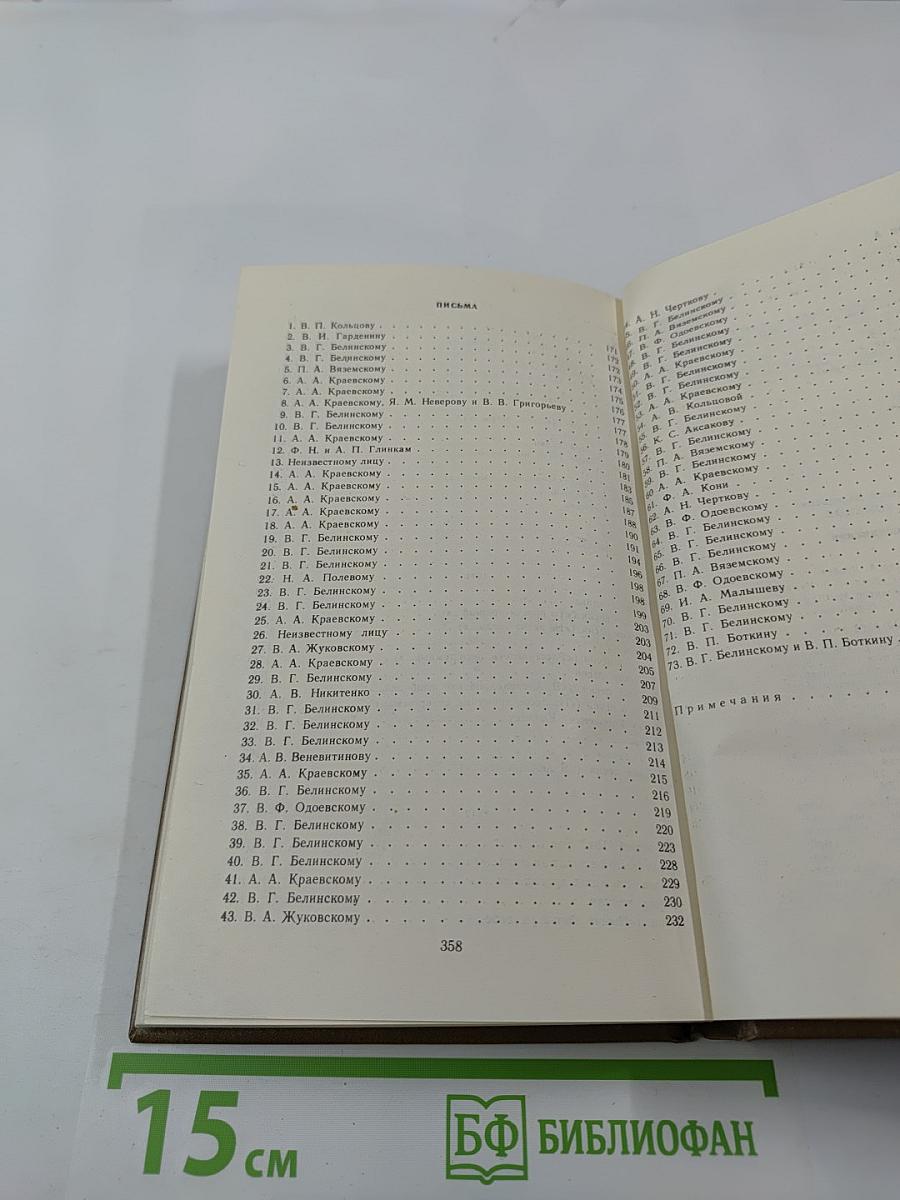 ПИСЬМА
1. В. П. Кольцову . . . 171
2. В. И. Гарденину . . . 172
3. В. Г. Белинскому . . . 172
4. В. Г. Белинскому . . . 173
5. П. А. Вяземскому . . . 174
6. А. А. Краевскому . . . 175
7. А. А. Краевскому . . . 176
8. А. А. Краевскому, Я. М. Неверову и В. В. Григорьеву . 177
9. В. Г. Белинскому . . . 177
10. В. Г. Белинскому . . . 178
11. А. А. Краевскому . . . 179
12. Ф. Н. и А. П. Глинкам . . . 180
13. Неизвестному лицу . . . 181
14. А. А. Краевскому . . . 183
15. А. А. Краевскому . . . 185
16. А. А. Краевскому . . . 187
17. А. А. Краевскому . . . 188
18. А. А. Краевскому . . . 190
19. В. Г. Белинскому . . . 191
20. В. Г. Белинскому . . . 194
21. В. Г. Белинскому . . . 196
22. Н. А. Полевому . . . 198
23. В. Г. Белинскому . . . 198
24. В. Г. Белинскому . . . 199
25. А. А. Краевскому . . . 203
26. Неизвестному лицу . . . 203
27. В. А. Жуковскому . . . 204
28. А. А. Краевскому . . . 205
29. В. Г. Белинскому . . . 207
30. А. В. Никитенко . . . 209
31. В. Г. Белинскому . . . 211
32. В. Г. Белинскому . . . 212
33. В. Г. Белинскому . . . 213
34. А. В. Веневитинову . . . 214
35. А. А. Краевскому . . . 215
36. В. Г. Белинскому . . . 216
37. В. Ф. Одоевскому . . . 219
38. В. Г. Белинскому . . . 220
39. В. Г. Белинскому . . . 223
40. В. Г. Белинскому . . . 228
41. А. А. Краевскому . . . 229
42. В. Г. Белинскому . . . 230
43. В. А. Жуковскому . . . 232
358
А. Н. Черткову
В. Г. Белинскому
П. А. Вяземскому
В. Ф. Одоевскому
В. Г. Белинскому
В. Г. Белинскому
А. А. Краевскому
В. Г. Белинскому
В. Г. Белинскому
А. А. Краевскому
А. В. Кольцовой
В. Г. Белинскому
К. С. Аксакову
57. В. Г. Белинскому
58. П. А. Вяземскому
59. В. Г. Белинскому
60. А. А. Краевскому
61. Ф. А. Кони
62. А. Н. Черткову
63. В. Ф. Одоевскому
64. В. Г. Белинскому
65. В. Г. Белинскому
66. В. Г. Белинскому
67. П. А. Вяземскому
68. В. Ф. Одоевскому
69. И. А. Малышеву
70. В. Г. Белинскому
71. В. Г. Белинскому
72. В. П. Боткину
73. В. Г. Белинскому и В. П. Боткину
Примечания
15 см
БФ БИБЛИОФАН